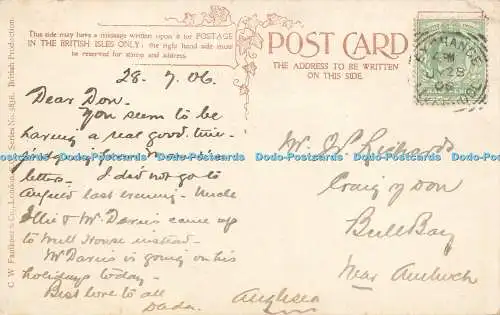 This side may have a message written upon it for POSTAGE
IN THE BRITISH ISLES ONLY; the right hand side must
be reserved for stamp and address.
POST CARD
THE ADDRESS TO BE WRITTEN
ON THIS SIDE.
C. W. Faulkner & Co., London. Series No. British Production
28. 7. 06.
Dear Don.
You seem to be
having a real good time
judging from
letters. I did not go to
last evening. Uncle
& Mr Davis came up
to Mill House instead.
Mr Davis is going on his
holidays today.
Best love to all
Dada.
Mr.
Craig y don
Bull Bay
Near Amlwch
Anglesea
Dodo-Postcards Dodo-Postcards Dodo-Postcards Dodo-Postcards Dodo-Postcards